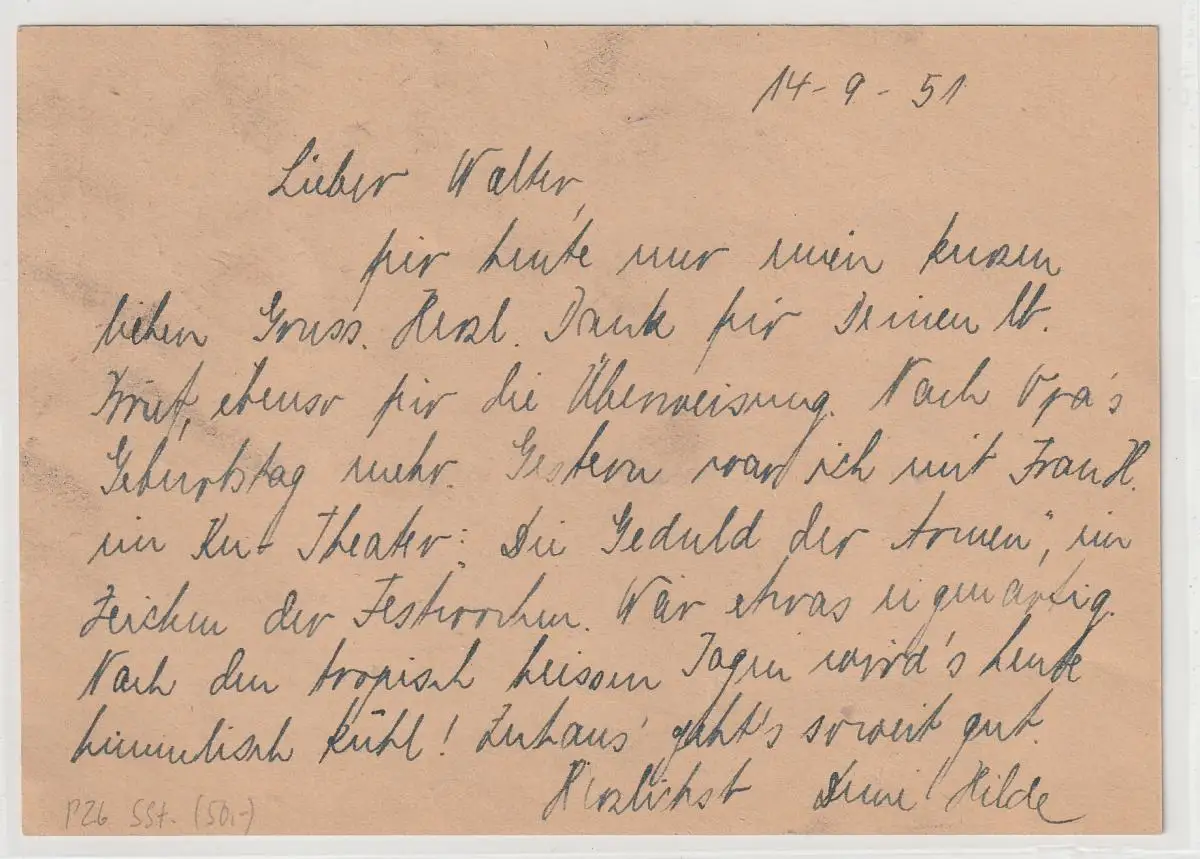 14-9-51
Lieber Walter,
für heute nur einen kurzen
lieben Gruss. Herzl. Dank für Deinen lb.
Brief, ebenso für die Überweisung. Nach Opa's
Geburtstag mehr. Gestern war ich mit Frau H.
im Ku-Theater: „Die Geduld der Armen", im
Zeichen der Festwochen. War etwas eigenartig.
Nach den tropisch heissen Tagen wird's heute
himmlisch kühl! Zuhaus' geht's soweit gut.
Herzlichst Deine Hilde
P26 SSt. (50,-)